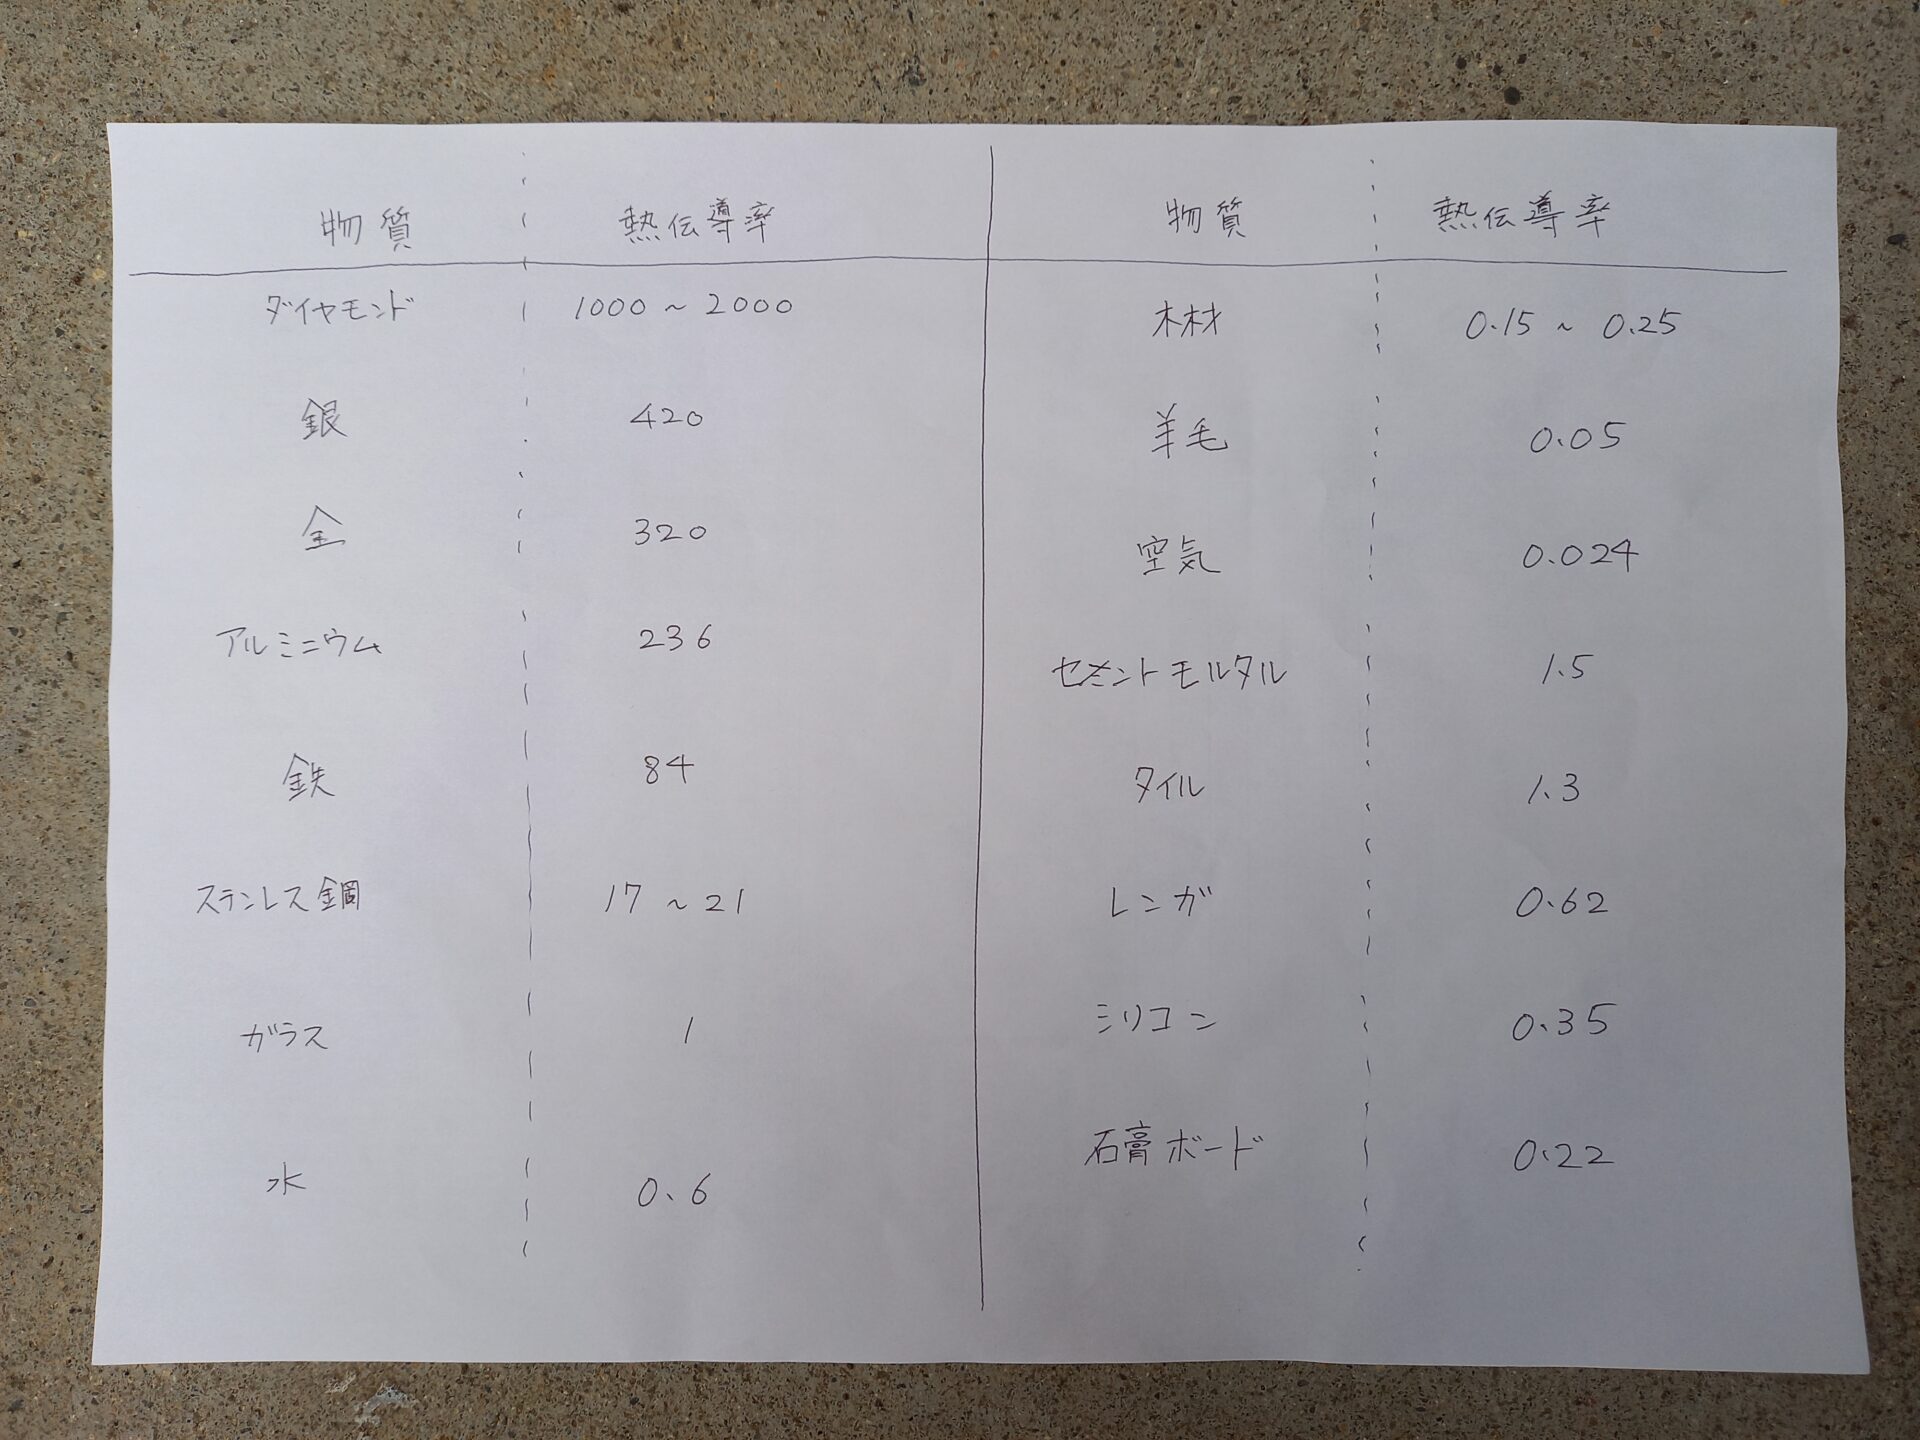 物質 熱伝導率
ダイヤモンド 1000 ~ 2000
銀 420
金 320
アルミニウム 236
鉄 84
ステンレス鋼 17 ~ 21
ガラス 1
水 0.6
物質 熱伝導率
木材 0.15 ~ 0.25
羊毛 0.05
空気 0.024
セメントモルタル 1.5
タイル 1.3
レンガ 0.62
シリコン 0.35
石膏ボード 0.22